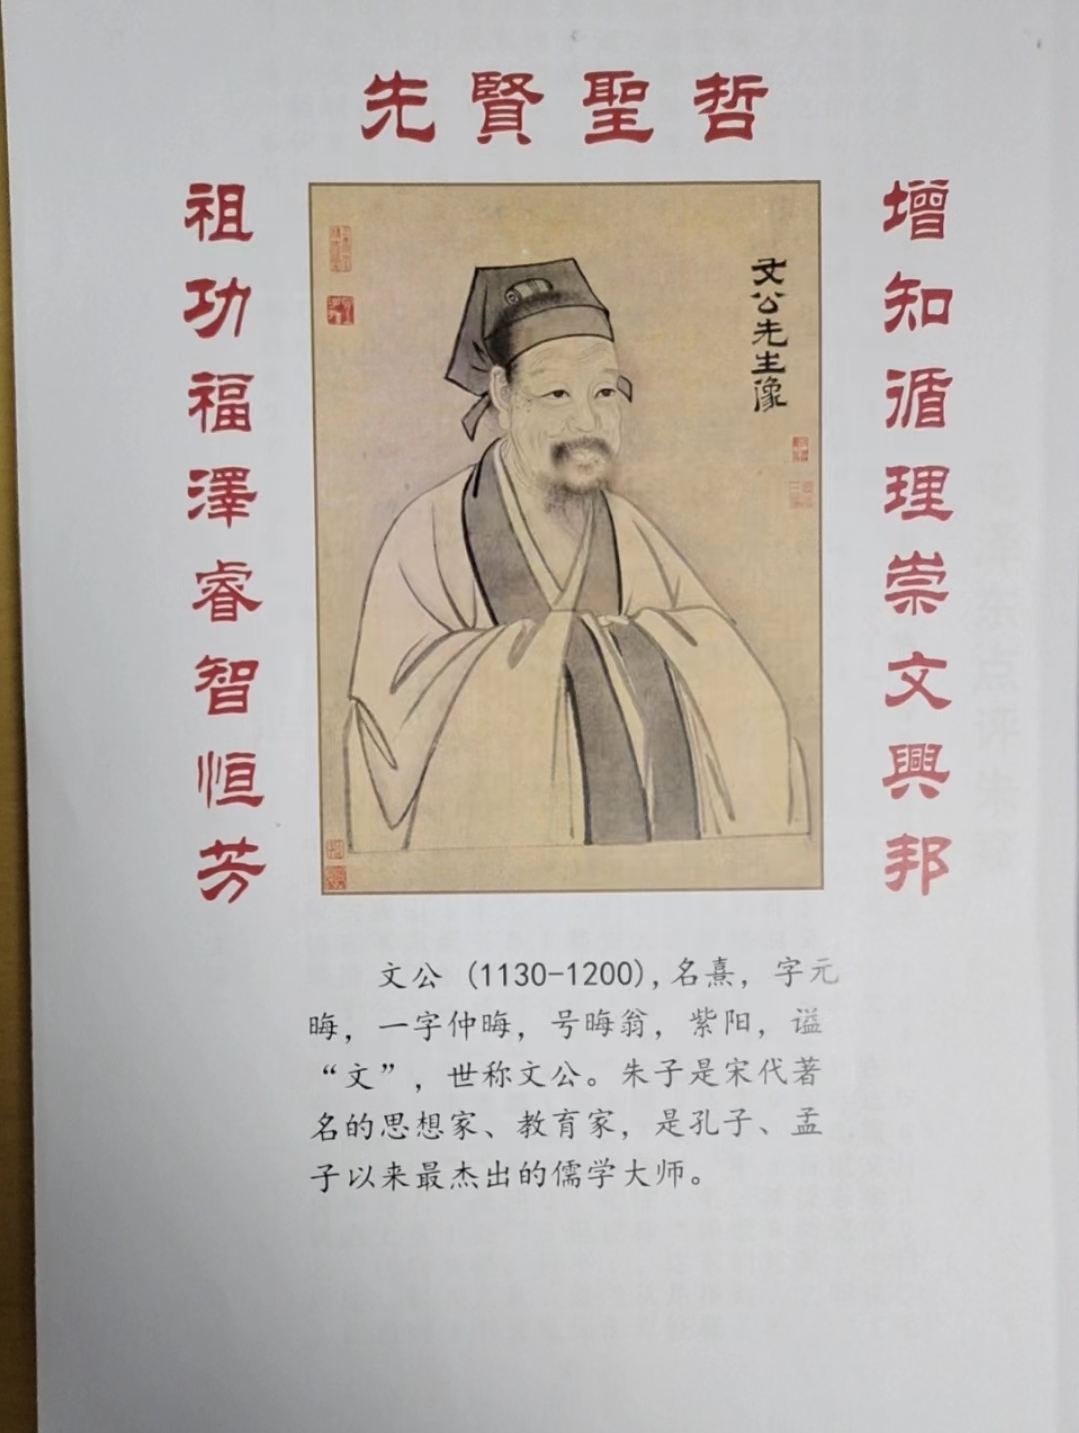 先賢聖哲
增知循理崇文興邦
祖功福澤睿智恒芳
文公先生像
文公（1130-1200），名熹，字元
晦，一字仲晦，号晦翁，紫阳，谥
“文”，世称文公。朱子是宋代著
名的思想家、教育家，是孔子、孟
子以来最杰出的儒学大师。